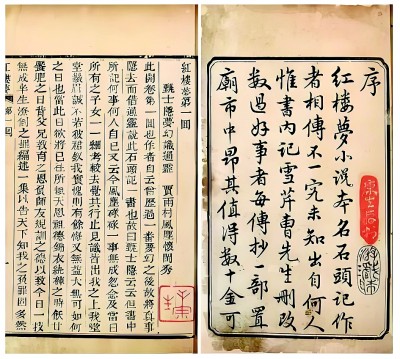 序
紅樓夢小說本名石頭記作
者相傳不一究未知出自何人
惟書內記雪芹曹先生刪改
數過好事者每傳抄一部置
廟市中昂其值得數十金可
紅樓夢第一回
甄士隱夢幻識通靈 賈雨村風塵懷閨秀
此開卷第一回也作者自云曾歷過一番夢幻之後故將真事
隱去而借通靈說此石頭記一書也故曰甄士隱云云但書中
所記何事何人自己又云今風塵碌碌一事無成忽念及當日
所有之女子一一細考較去覺其行止見識皆出我之上我堂
堂鬚眉誠不若彼裙釵我實愧則有餘悔又無益大無可如何
之日也當此日欲將已往所賴天恩祖德錦衣紈袴之時飫甘
饜肥之日背父兄教育之恩負師友規訓之德以致今日一技
無成半生潦倒之罪編述一集以告天下知我之負罪固多然
紅樓夢 第一回